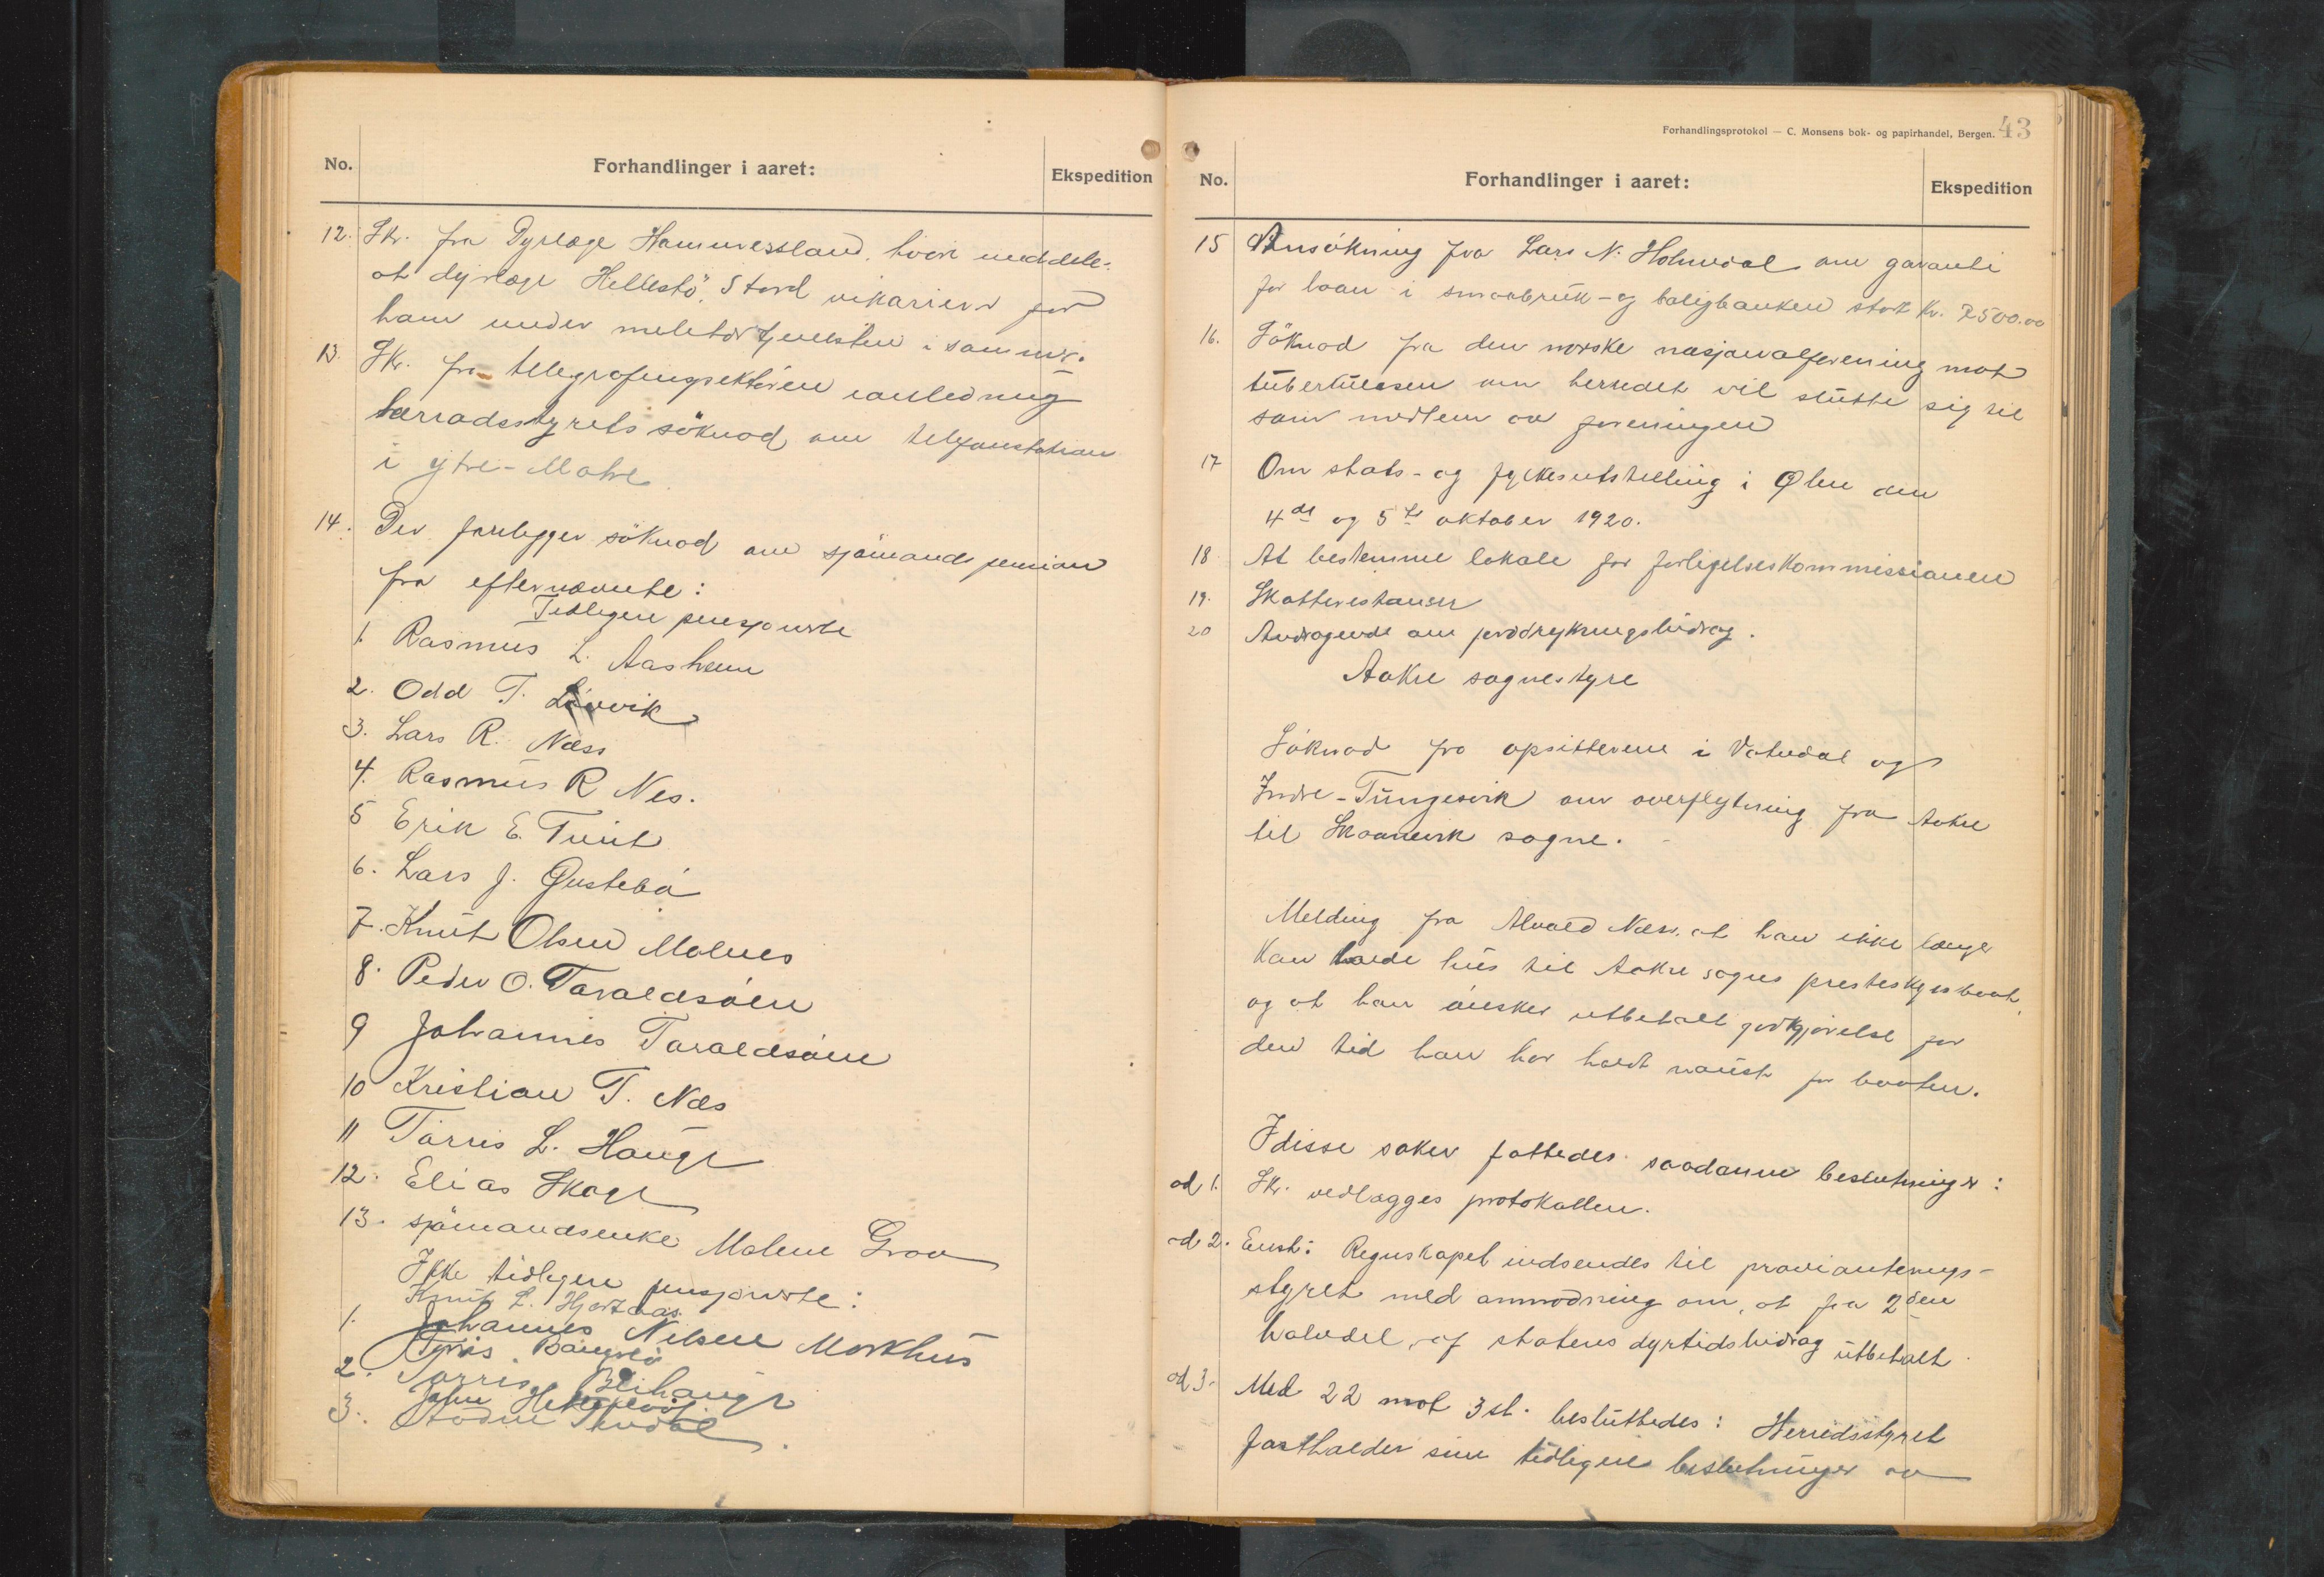 No.
Forhandlinger i aaret:
Ekspedition
12. Skr. fra Dyrlæge Hammersland, hvori meddeles
at dyrlæge Hellestö, Stord vikarierer for
ham under militærtjenesten i sommer.
13. Skr. fra telegrafinspektören i anledning
herradsstyrets söknad om telefonstation
i ytre-Matre
14. Der foreligger söknad om sjömandspension
fra efternævnte:
Tidligere pensjonerte
1. Rasmus L. Aasheim
2. Odd T. Lövvik
3. Lars R. Næss
4. Rasmus R Nes.
5 Erik E. Tveit
6. Lars J. Gustebö
7. Knut Olsen Molnes
8. Peder O. Taraldsöen
9 Johannes Taraldsöen
10 Kristian T. Næs
11 Tørris L. Hauge
12. Elias Skage
13. sjömandsenke Malene Grov
Ikke tidligere pensjonerte:
Knut L. Hjortaas
1. Johannes Nilsen Markhus
2. Tørris Blihauge
John
3. Stövdal
Forhandlingsprotokol — C. Monsens bok- og papirhandel, Bergen.
43
No.
Forhandlinger i aaret:
Ekspedition
15 Ansökning fra Lars N. Holmedal om garanti
for laan i smaabruk- og boligbanken stort kr. 2500.00
16. Söknad fra den norske nasjonalforening mot
tuberkulosen om herredet vil slutte sig til
som medlem av foreningen
17 Om stats- og fylkesutstilling i Ølen den
4de og 5te oktober 1920.
18 At bestemme lokale for forligelseskommissionen
19. Skatterestanser
20 Andragende om jorddyrkningsbidrag.
Aakre sognestyre
Söknad fra opsitterene i Vatnedal og
Indre-Tungesvik om overflytning fra Aakre
til Skaanevik sogne.
Melding fra Alvald Næss. at han ikke længer
kan holde hus til Aakre sogns presteskyssbaat,
og at han önsker utbetalt godtgjörelse for
den tid han har holdt naust for baaten.
I disse saker fattedes saadanne beslutninger:
ad 1. Skr. vedlægges protokollen.
ad 2. Enst: Regnskapet indsendes til provianterings-
styret med anmodning om, at faa 2den
halvdel, af statens dyrtidsbidrag utbetalt.
ad 3. Med 22 mot 3 st. besluttedes: Herredsstyret
fastholder sine tidligere beslutninger av